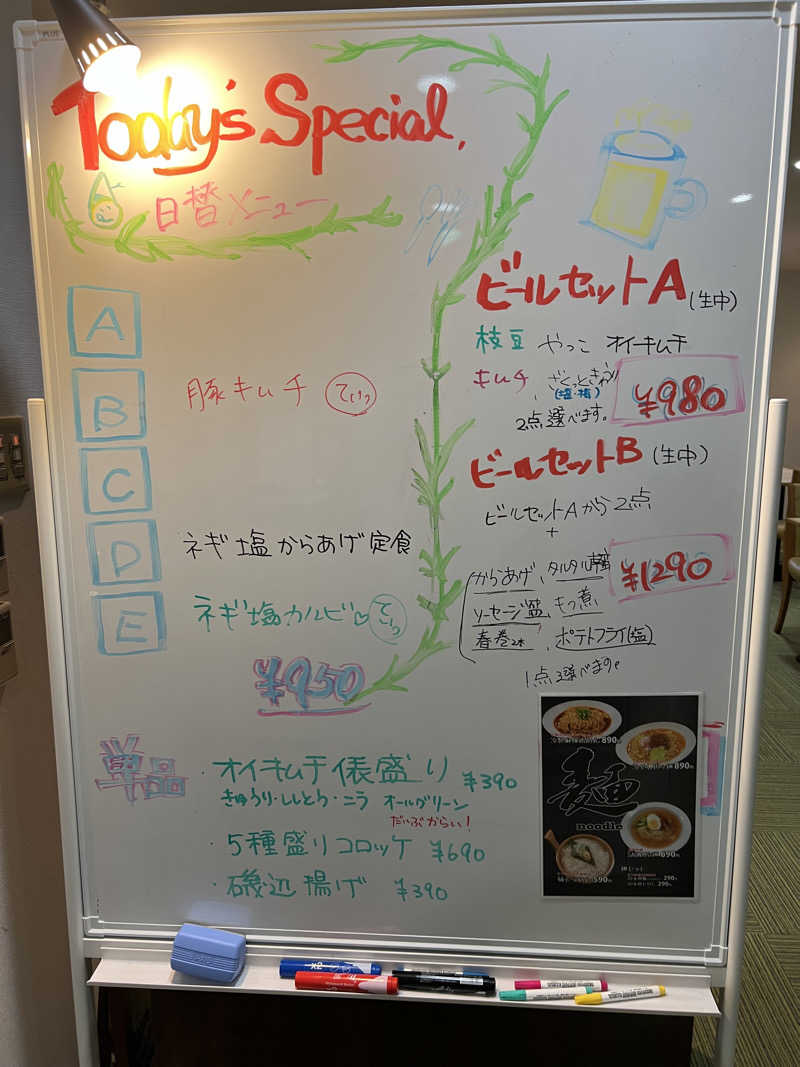 Today's Special.
日替メニュー
A
B 豚キムチ ていしょく
C
D ネギ塩からあげ定食
E ネギ塩カルビ♡
¥950
ビールセットA(生中)
枝豆 やっこ オイキムチ
キムチ、ざくっときゅうり
(塩・梅)
¥980
2点選べます。
ビールセットB (生中)
ビールセットAから2点
+
からあげ、タルタル
¥1290
ソーセージ、もつ煮
春巻2本、ポテトフライ(塩)
1点選べます。
単品
・オイキムチ俵盛り ¥390
きゅうり・ししとう・ニラ オールグリーン
だいぶからい!
・5種盛りコロッケ ¥690
・磯辺揚げ ¥390
麺
noodle
890
890
690
590
290
290